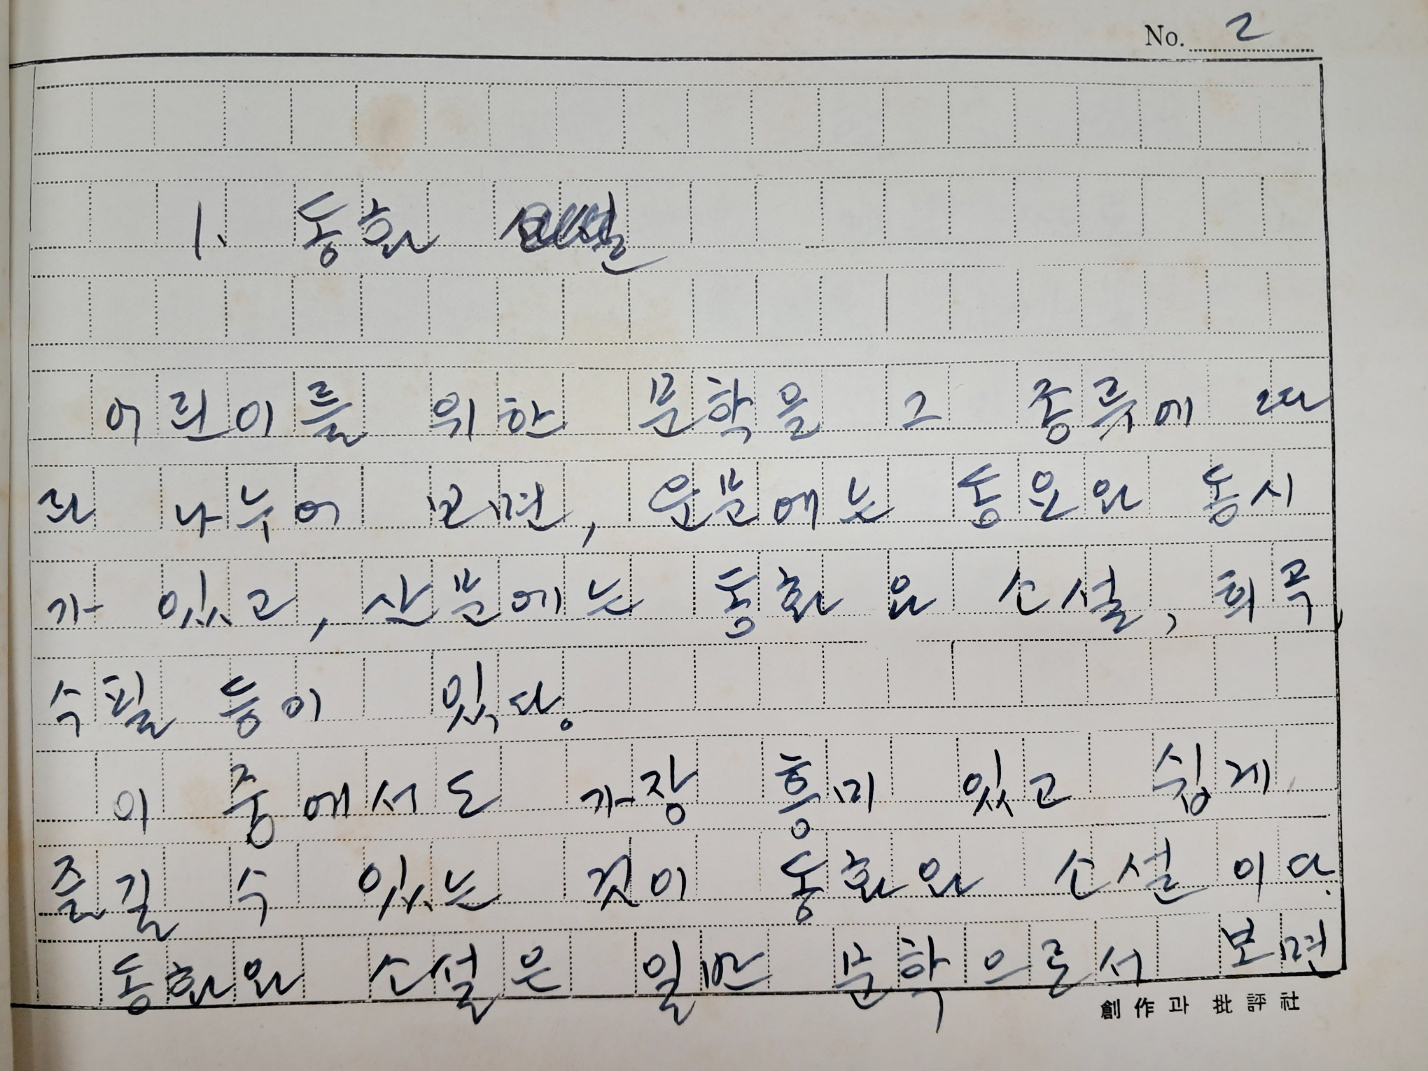 No. 2
1. 동화
어린이를 위한 문학을 그 종류에 따
라 나누어 보면, 운문에는 동요와 동시
가 있고, 산문에는 동화와 소설, 희곡,
수필 등이 있다.
이 중에서도 가장 흥미 있고 쉽게
즐길 수 있는 것이 동화와 소설이다.
동화와 소설은 일반 문학으로서 보면
創作과 批評社